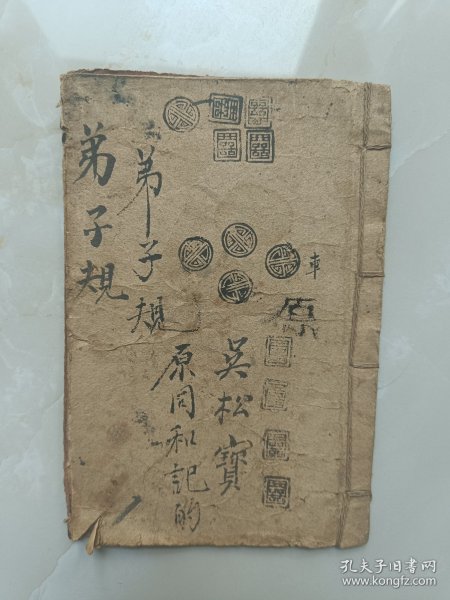 車
原
吳松寶
原同和記的
弟子規
弟子規
孔夫子旧书网
www.kongfz.com